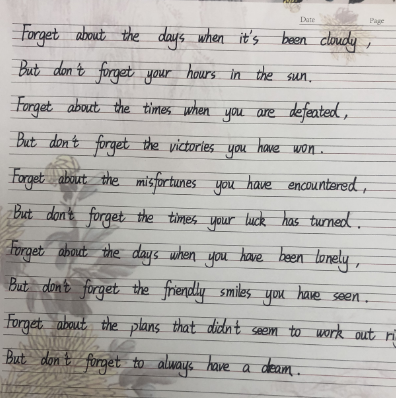 Date Page
Forget about the days when it's been cloudy,
But don't forget your hours in the sun.
Forget about the times when you are defeated,
But don't forget the victories you have won.
Forget about the misfortunes you have encountered,
But don't forget the times your luck has turned.
Forget about the days when you have been lonely,
But don't forget the friendly smiles you have seen.
Forget about the plans that didn't seem to work out
But don't forget to always have a dream.